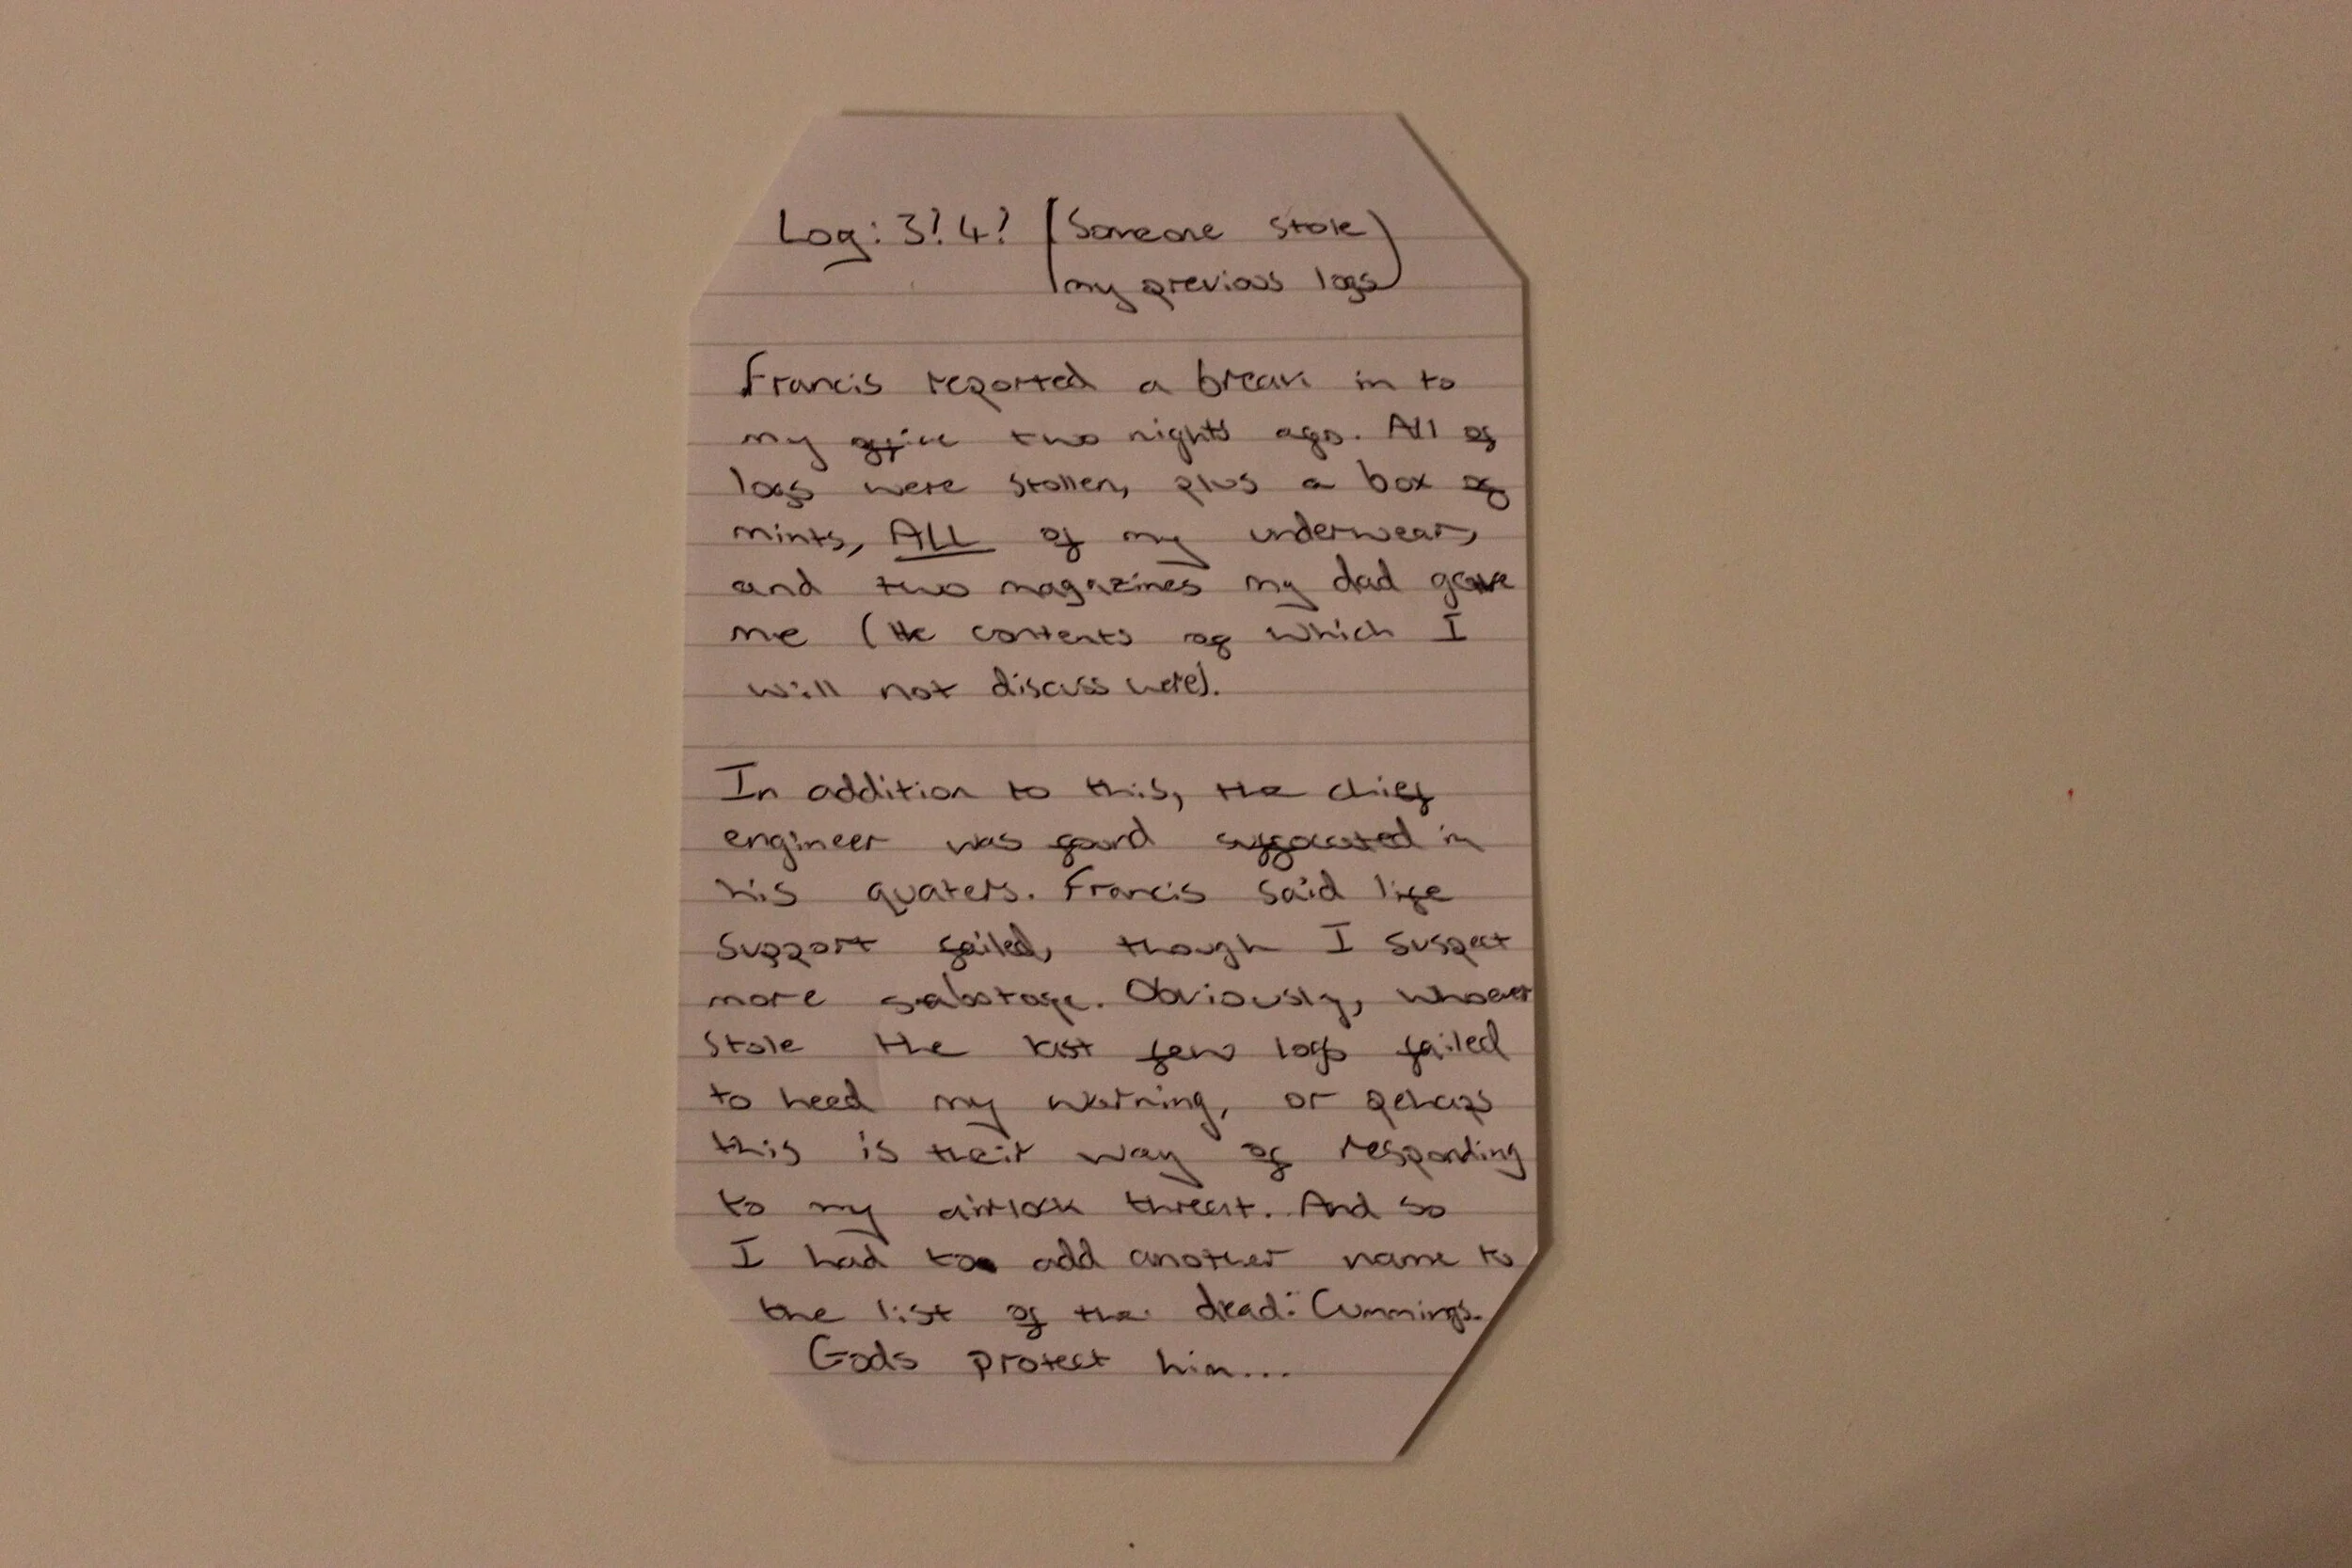 Log: 3? 4? (Someone stole
my previous logs)
Francis reported a break in to
my office two nights ago. All of
logs were stollen, plus a box of
mints, ALL of my underwear,
and two magazines my dad gave
me (the contents of which I
will not discuss here).
In addition to this, the chief
engineer was found suffocated in
his quaters. Francis said life
support failed, though I suspect
more sabotage. Obviously, whoever
stole the last few logs failed
to heed my warning, or pehaps
this is their way of responding
to my airlock threat. And so
I had to add another name to
the list of the dead: Cummings.
Gods protect him...